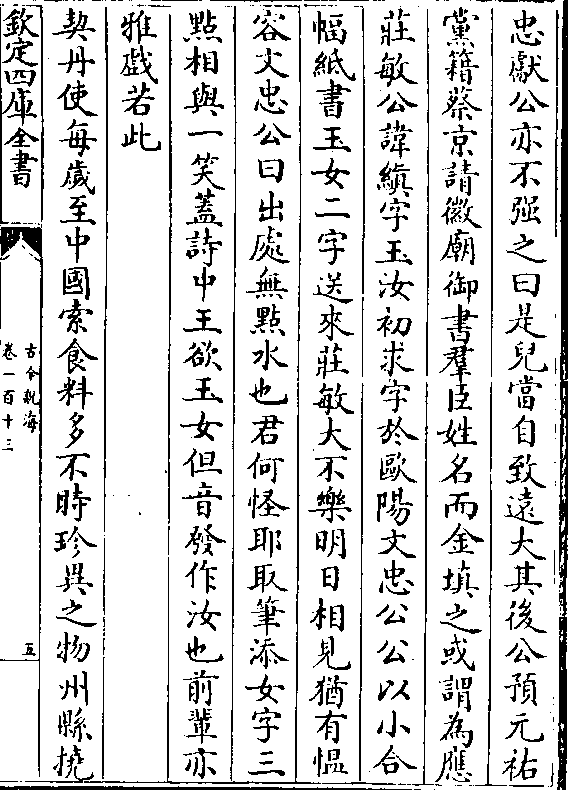 忠獻公亦不强之曰是兒當自致遠大其後公預元祐
黨籍蔡京請徽廟御書羣臣姓名而金填之或謂為應
莊敏公諱縝字玉汝初求字於歐陽文忠公公以小合
幅紙書玉女二字送來莊敏大不樂明日相見猶有愠
容文忠公曰出處無點水也君何怪耶取筆添女字三
點相與一笑蓋詩中王欲玉女但音發作汝也前輩亦
雅戲若此
契丹使每歲至中國索食料多不時珍異之物州縣撓
欽定四庫全書
古今說海
卷一百十三
五